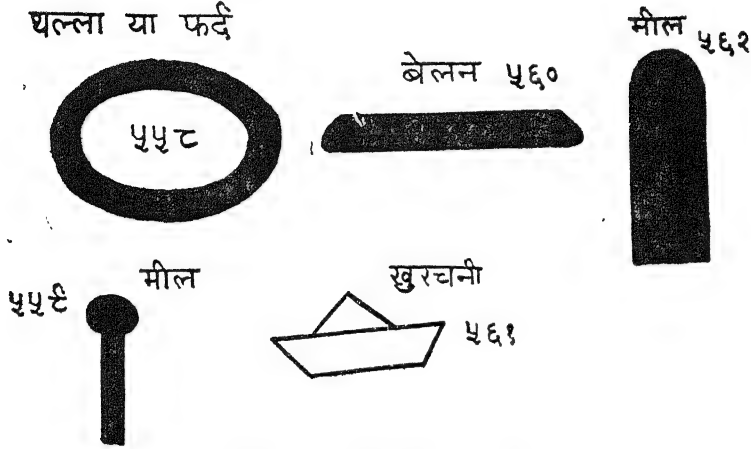 थल्ला या फर्द
५५८
बेलन ५६०
मील ५६२
५५९ मील
खुरचनी
५६१